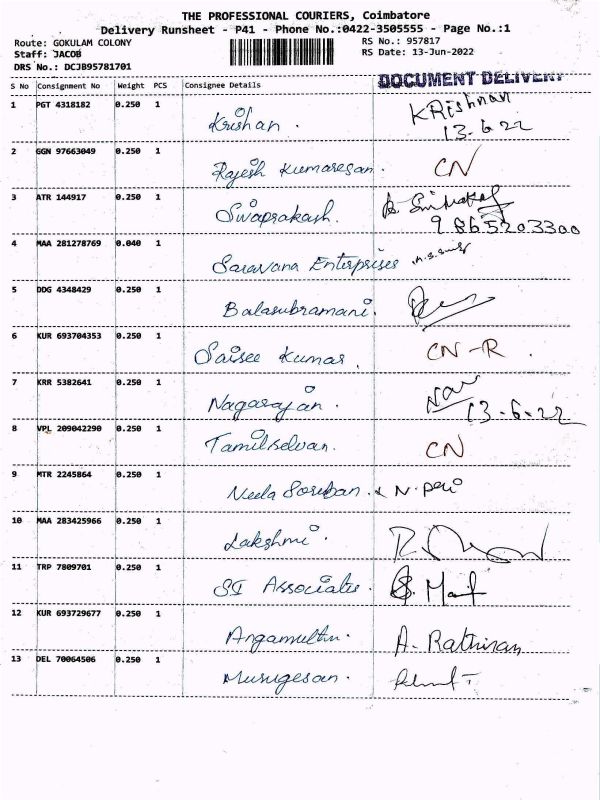 THE PROFESSIONAL COURIERS, Coimbatore
Delivery Runsheet - P41 - Phone No.:0422-3505555 - Page No.:1
Route: GOKULAM COLONY
Staff: JACOB
DRS No.: DCJB95781701
RS No.: 957817
RS Date: 13-Jun-2022
DOCUMENT DELIVERY
S No Consignment No Weight PCS Consignee Details
1 PGT 4318182 0.250 1 Krishan. Krishnan
13-6-22
2 GGN 97663049 0.250 1 Rajesh Kumaresan. CN
3 ATR 144917 0.250 1 Swaprakash.
9865203300
4 MAA 281278769 0.040 1 Saravana Enterprises
5 DDG 4348429 0.250 1 Balasubramani.
6 KUR 693704353 0.250 1 Saisee Kumar. CN-R
7 KRR 5382641 0.250 1 Nagarajan.
13-6-22
8 VPL 209042290 0.250 1 Tamilselvan. CN
9 MTR 2245864 0.250 1 Neela
10 MAA 283425966 0.250 1 Lakshmi.
11 TRP 7809701 0.250 1 SI Associates.
12 KUR 693729677 0.250 1 Angamuthu. A. Rathinan
13 DEL 70064506 0.250 1 Murugesan.